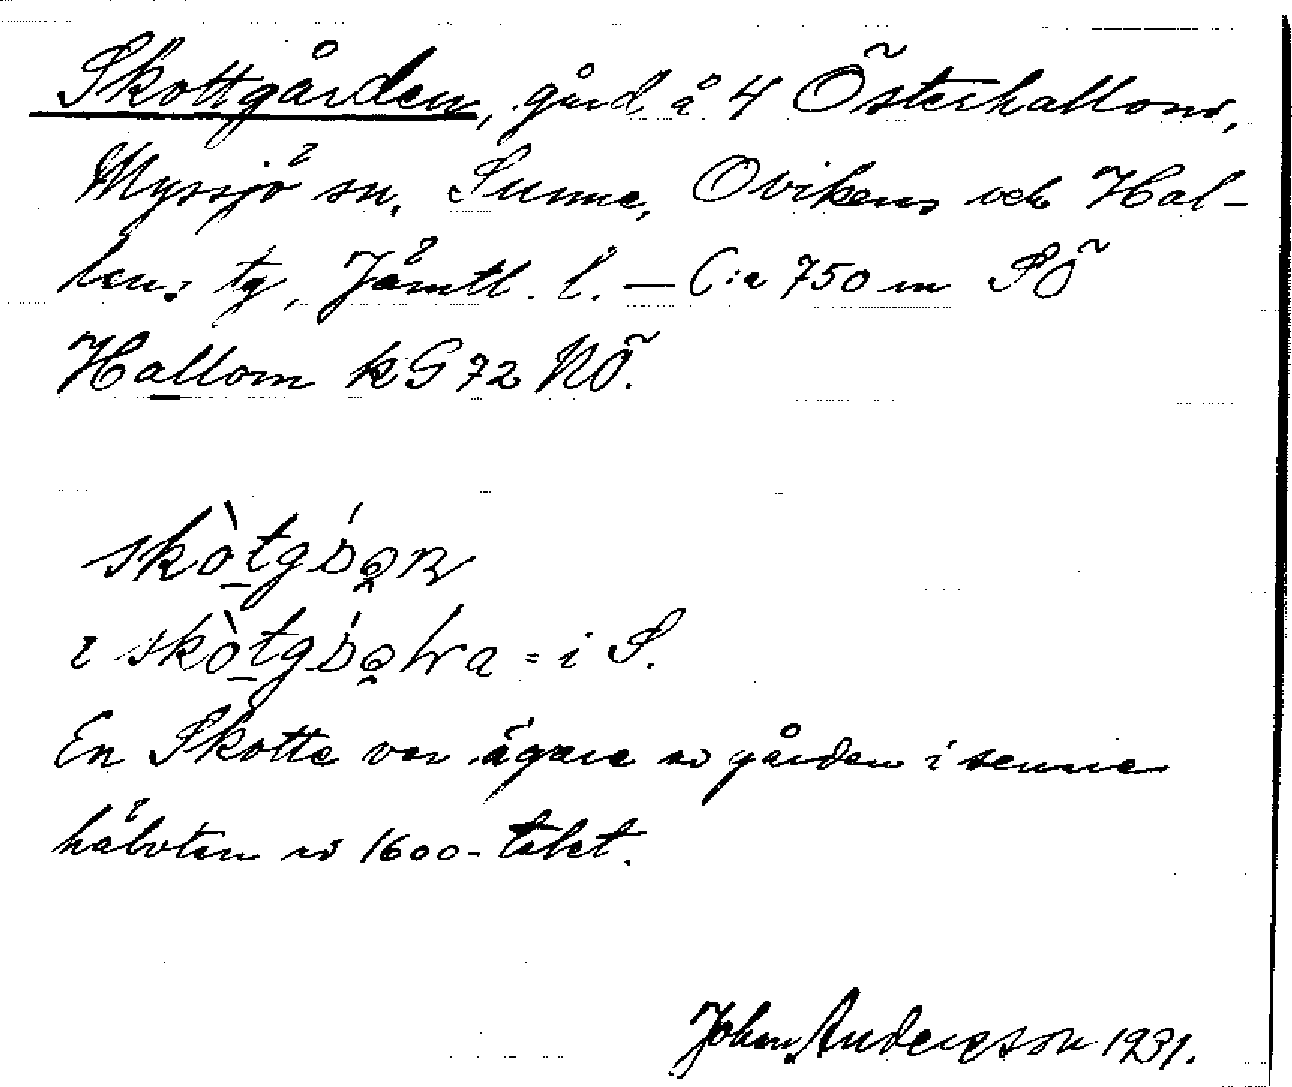 Skottgården, gård å 4 Österhallom,
Myssjö sn, Sunne, Ovikens och Hal-
lens tg, Jämtl. l. — C:a 750 m SÖ
Hallom k G 72 NÖ.
skòtgɷ́ən
i skòtgɷ́əɭɴa = i S.
En Skotte var ägare av gården i senare
hälvten av 1600-talet.
Johan Andersson 1931.